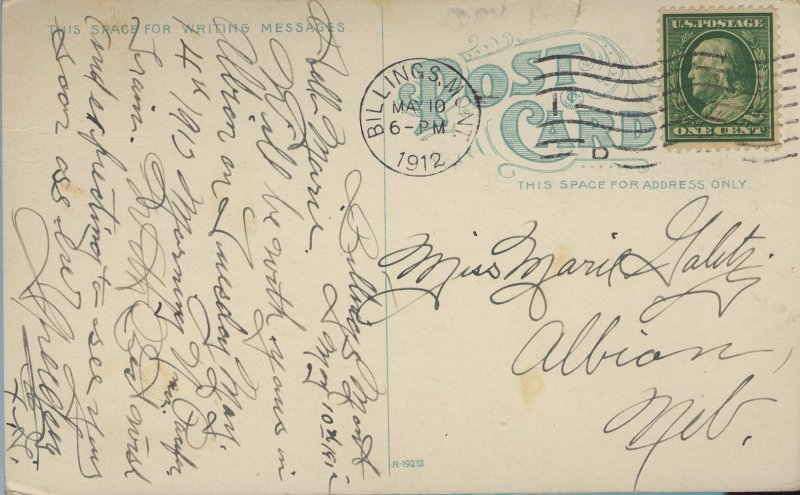 THIS SPACE FOR WRITING MESSAGES.
Billings Mont
May 10th 1912
Hello Marie.
Will be with yous in
Albion on Tuesday
Morning
Train. With Best wish
And expecting to see yous
soon as ever
POST CARD
BILLINGS, MONT.
MAY 10
6-PM
1912
U.S. POSTAGE
ONE CENT
THIS SPACE FOR ADDRESS ONLY.
Miss Marie
Albion,
Neb.
R-19212